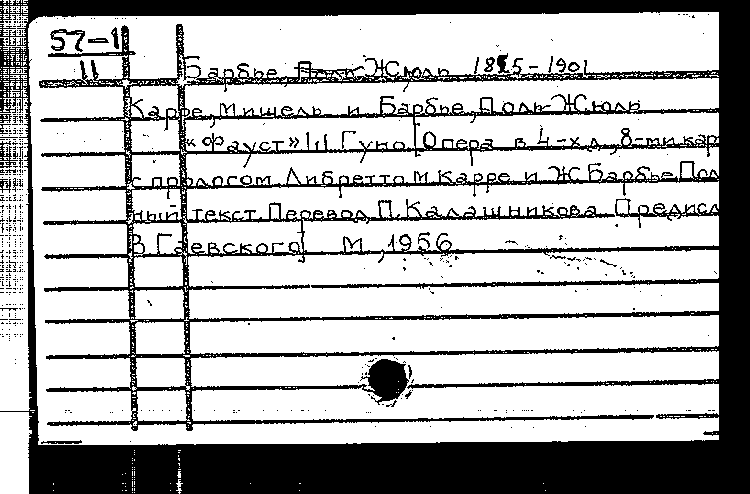 57-11
11
Барбье, Поль Жюль 1825-1901
Карре, Мишель и Барбье, Поль-Жюль
«Фауст» Ш. Гуно. [Опера в 4-х д., 8-ми кар
с прологом. Либретто М. Карре и Ж. Барбье. Пол
ный текст. Перевод П. Калашникова. Предисл
В. Гаевского]. М., 1956